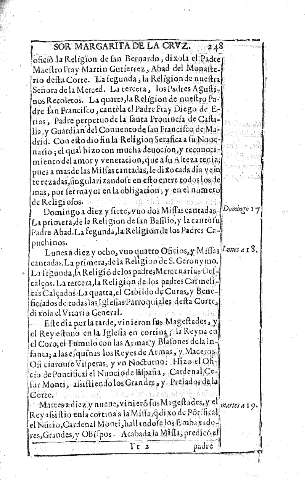 SOR MARGARITA DE LA CRVZ. 248
oficiò la Religion de san Bernardo, dixola el Padre
Maestro Fray Martin Gutierrez, Abad del Monaste-
rio desta Corte. La segunda, la Religion de nuestra
Señora de la Merced. La tercera, los Padres Agusti-
nos Recoletos. La quarta, la Religion de nuestro Padre
san Francisco, cantòla el Padre Fray Diego de E-
rias, Padre perpetuo de la santa Prouincia de Casti-
lla, y Guardian del Conuento de san Francisco de Ma-
drid. Con esto dio fin la Religion Serafica a su Noue-
nario; el qual hizo con mucha deuocion, y reconoci-
miento del amor y veneracion, que a su Alteza tenia;
pues a mas de las Missas cantadas, le dixo cada dia
rezadas, singularizandose en esto entre todos los de-
mas, por ser mayor en la obligacion, y en el numero
de Religiosos.
Domingo a diez y siete, vuo dos Missas cantadas.
Domingo 17.
La primera, de la Religion de san Basilio, y la cantò su
Padre Abad. La segunda, la Religion de los Padres Ca-
puchinos.
Lunes a diez y ocho, vuo quatro Oficios, y Missas
Lunes a 18.
cantadas. La primera, de la Religion de S. Geronymo.
La segunda, la Religiō de los padres Mercenarios Des-
calços. La tercera, la Religion de los padres Carmeli-
tas Calçados. La quarta, el Cabildo de Curas, y Bene-
ficiados de todas las Iglesias Parroquiales desta Corte,
dixola el Vicario General.
Este dia por la tarde, vinieron sus Magestades, y
el Rey estuuo en la Iglesia en cortina, y la Reyna en
el Coro, el Tumulo con las Armas, y Blasones de la In-
fanta; a las esquinas los Reyes de Armas, y Maceros.
Oficiaronse Visperas, y vn Nocturno: Hizo el Ofi-
cio de Pontifical el Nuncio de España, Cardenal, Ce-
sar Monti, assistiendo los Grandes, y Prelados de la
Corte.
Martes a diez y nueue, vinierō sus Magestades, y el
martes a 19.
Rey assistio en la cortina a la Missa, q̄ dixo de Pōtifical
el Nūcio, Cardenal Monti, hallandose los Embaxado-
res, Grandes, y Obispos. Acabada la Missa, predicò el
padre